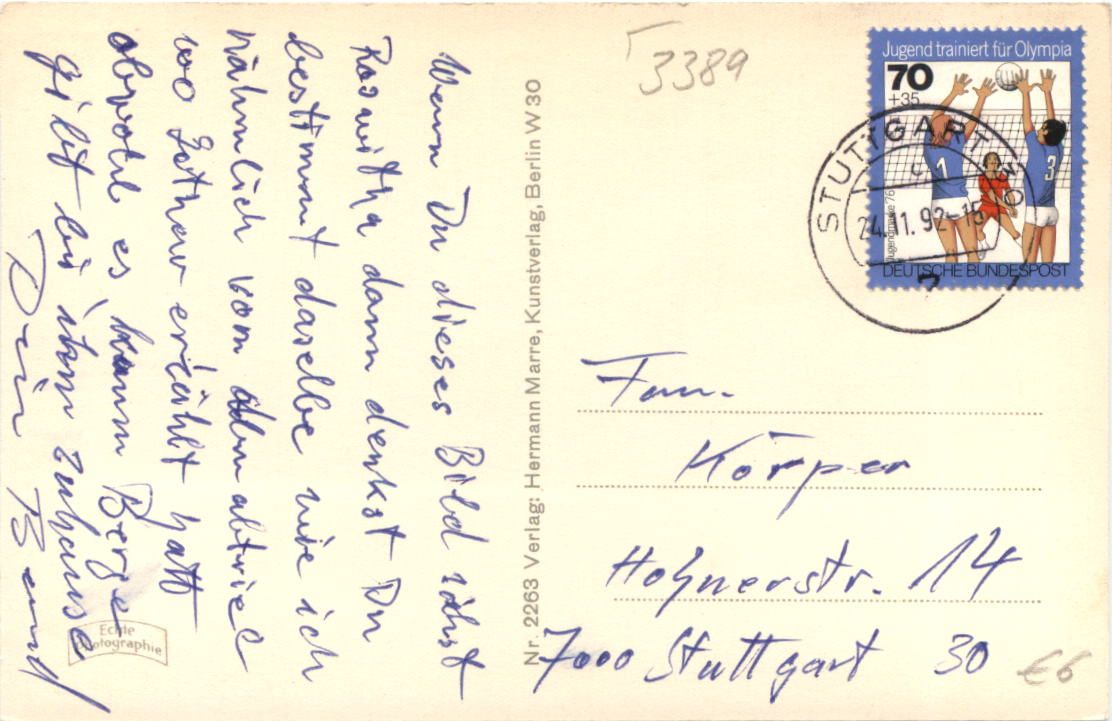 Wenn Du dieses Bild sihst
Roswitha dann denkst Du
bestimmt dasselbe wie ich
nähmlich vom abtrieb
woo Lothar erzählt hatt
obwohl es kaum Berge
gibt bei ihm zuhause
Dein Bernd
Echte
Photographie
Nr. 2263 Verlag: Hermann Marre, Kunstverlag, Berlin W 30
3389
Jugend trainiert für Olympia
70
+35
1
3
Jugendmarke 76
DEUTSCHE BUNDESPOST
STUTTGART 30
24.11.92-15
Fam.
Körper
Hohnerstr. 14
7000 Stuttgart 30
€6